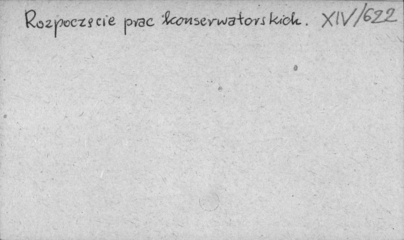 Rozpoczęcie prac konserwatorskich. XIV/622